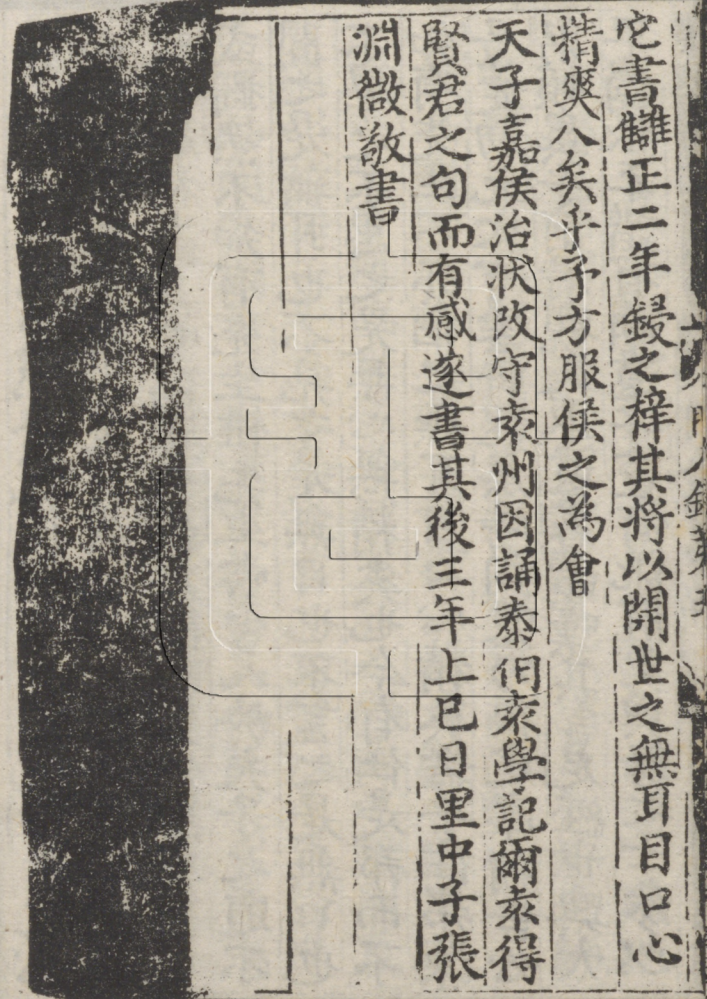 它書讎正二年鋟之梓其將以開世之無耳目口心
精爽八矣乎予方服侯之為會
天子嘉侯治狀改守袁州因誦泰伯袁學記爾袁得
賢君之句而有感遂書其後三年上巳日里中子張
淵微敬書